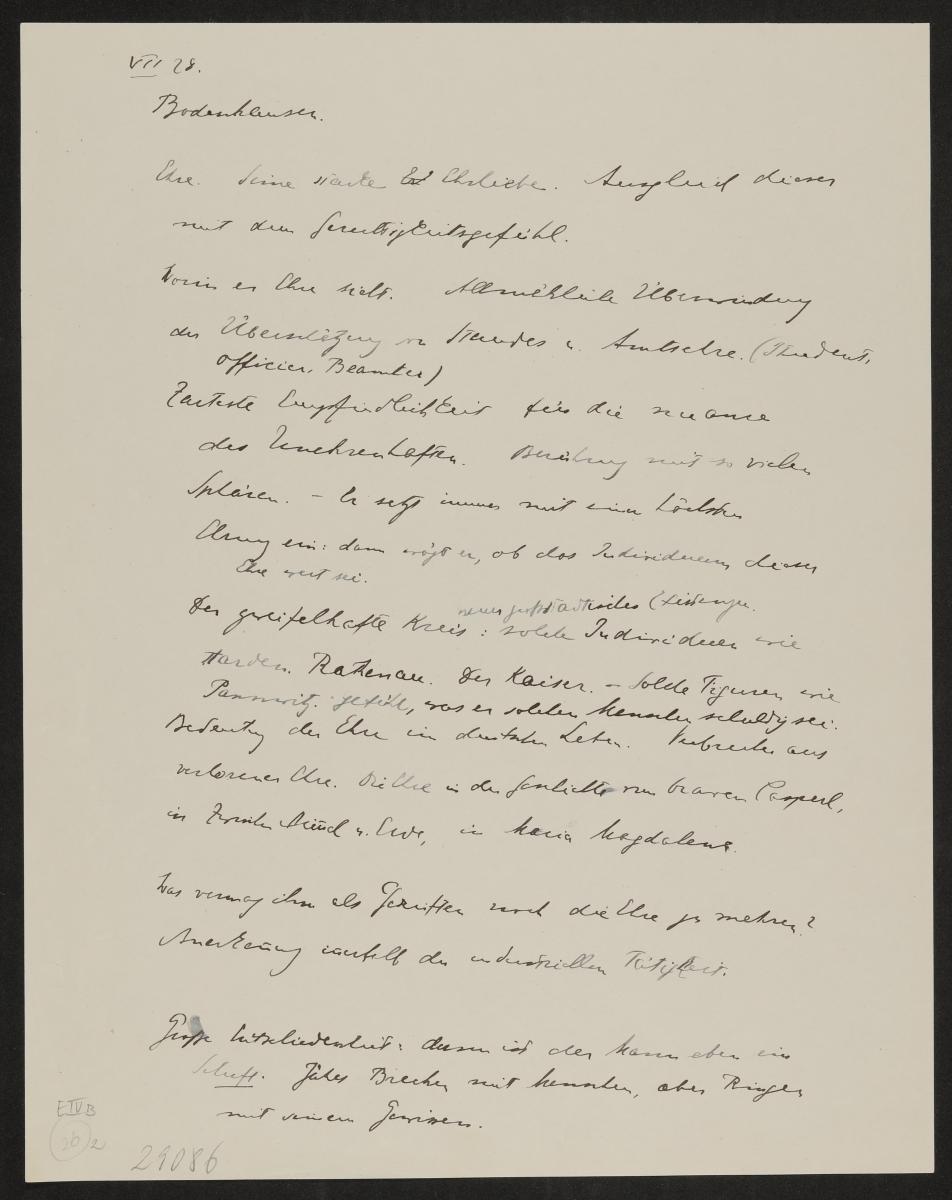 VII 28.
Bodenhausen.
Ehre. Seine starke Ehrliebe. Ausgleich dieser
mit dem Gerechtigkeitsgefühl.
Worin er Ehre sieht. Allmähliche Überwindung
der Überschätzung von Standes u. Amtsehre. (Student,
Officier, Beamter)
Zarteste Empfindlichkeit für die nuance
des Unehrenhaften. Berührung mit so vielen
Sphären. – Er setzt immer mit einer höchsten
Ehrung ein: dann wägt er, ob das Individuum dieser
Ehre wert sei.
neuer großstädtischer Existenzen.
Der zweifelhafte Kreis: solche Individuen wie
Harden. Rathenau. Der Kaiser. – Solche Figuren wie
Pannwitz. Gefühl, was er solchen Menschen schuldig sei.
Bedeutung der Ehre im deutschen Leben. Verbrecher aus
verlorener Ehre. Die Ehre in der Geschichte vom braven Casperl,
in Minna u. Ehre, in Maria Magdalena.
Was vermag ihm als Gereiften noch die Ehre zu mehren?
Anerkennung innerhalb der industriellen Tätigkeit.
Große Entschiedenheit: dann ist der Mann eben ein
Schuft. Jähes Brechen mit Menschen, aber Ringen
mit seinem Gewissen.
E IV B
26 2
29086